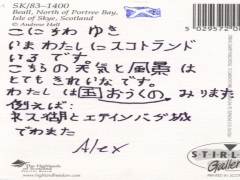 SK/83-1400
Beall, North of Portree Bay,
Isle of Skye, Scotland
© Andrew Hall
こにちわ ゆき
いま わたしに スコトランド
いる です。
こちらの 天気と 風景は
とても きれいな です。
わたしは 国 おうくの みります
例えば:
ネス湖と エディンバラ城
でわまた
Alex
5 029572 00
The Highlands
of Scotland
STIRL
Galler